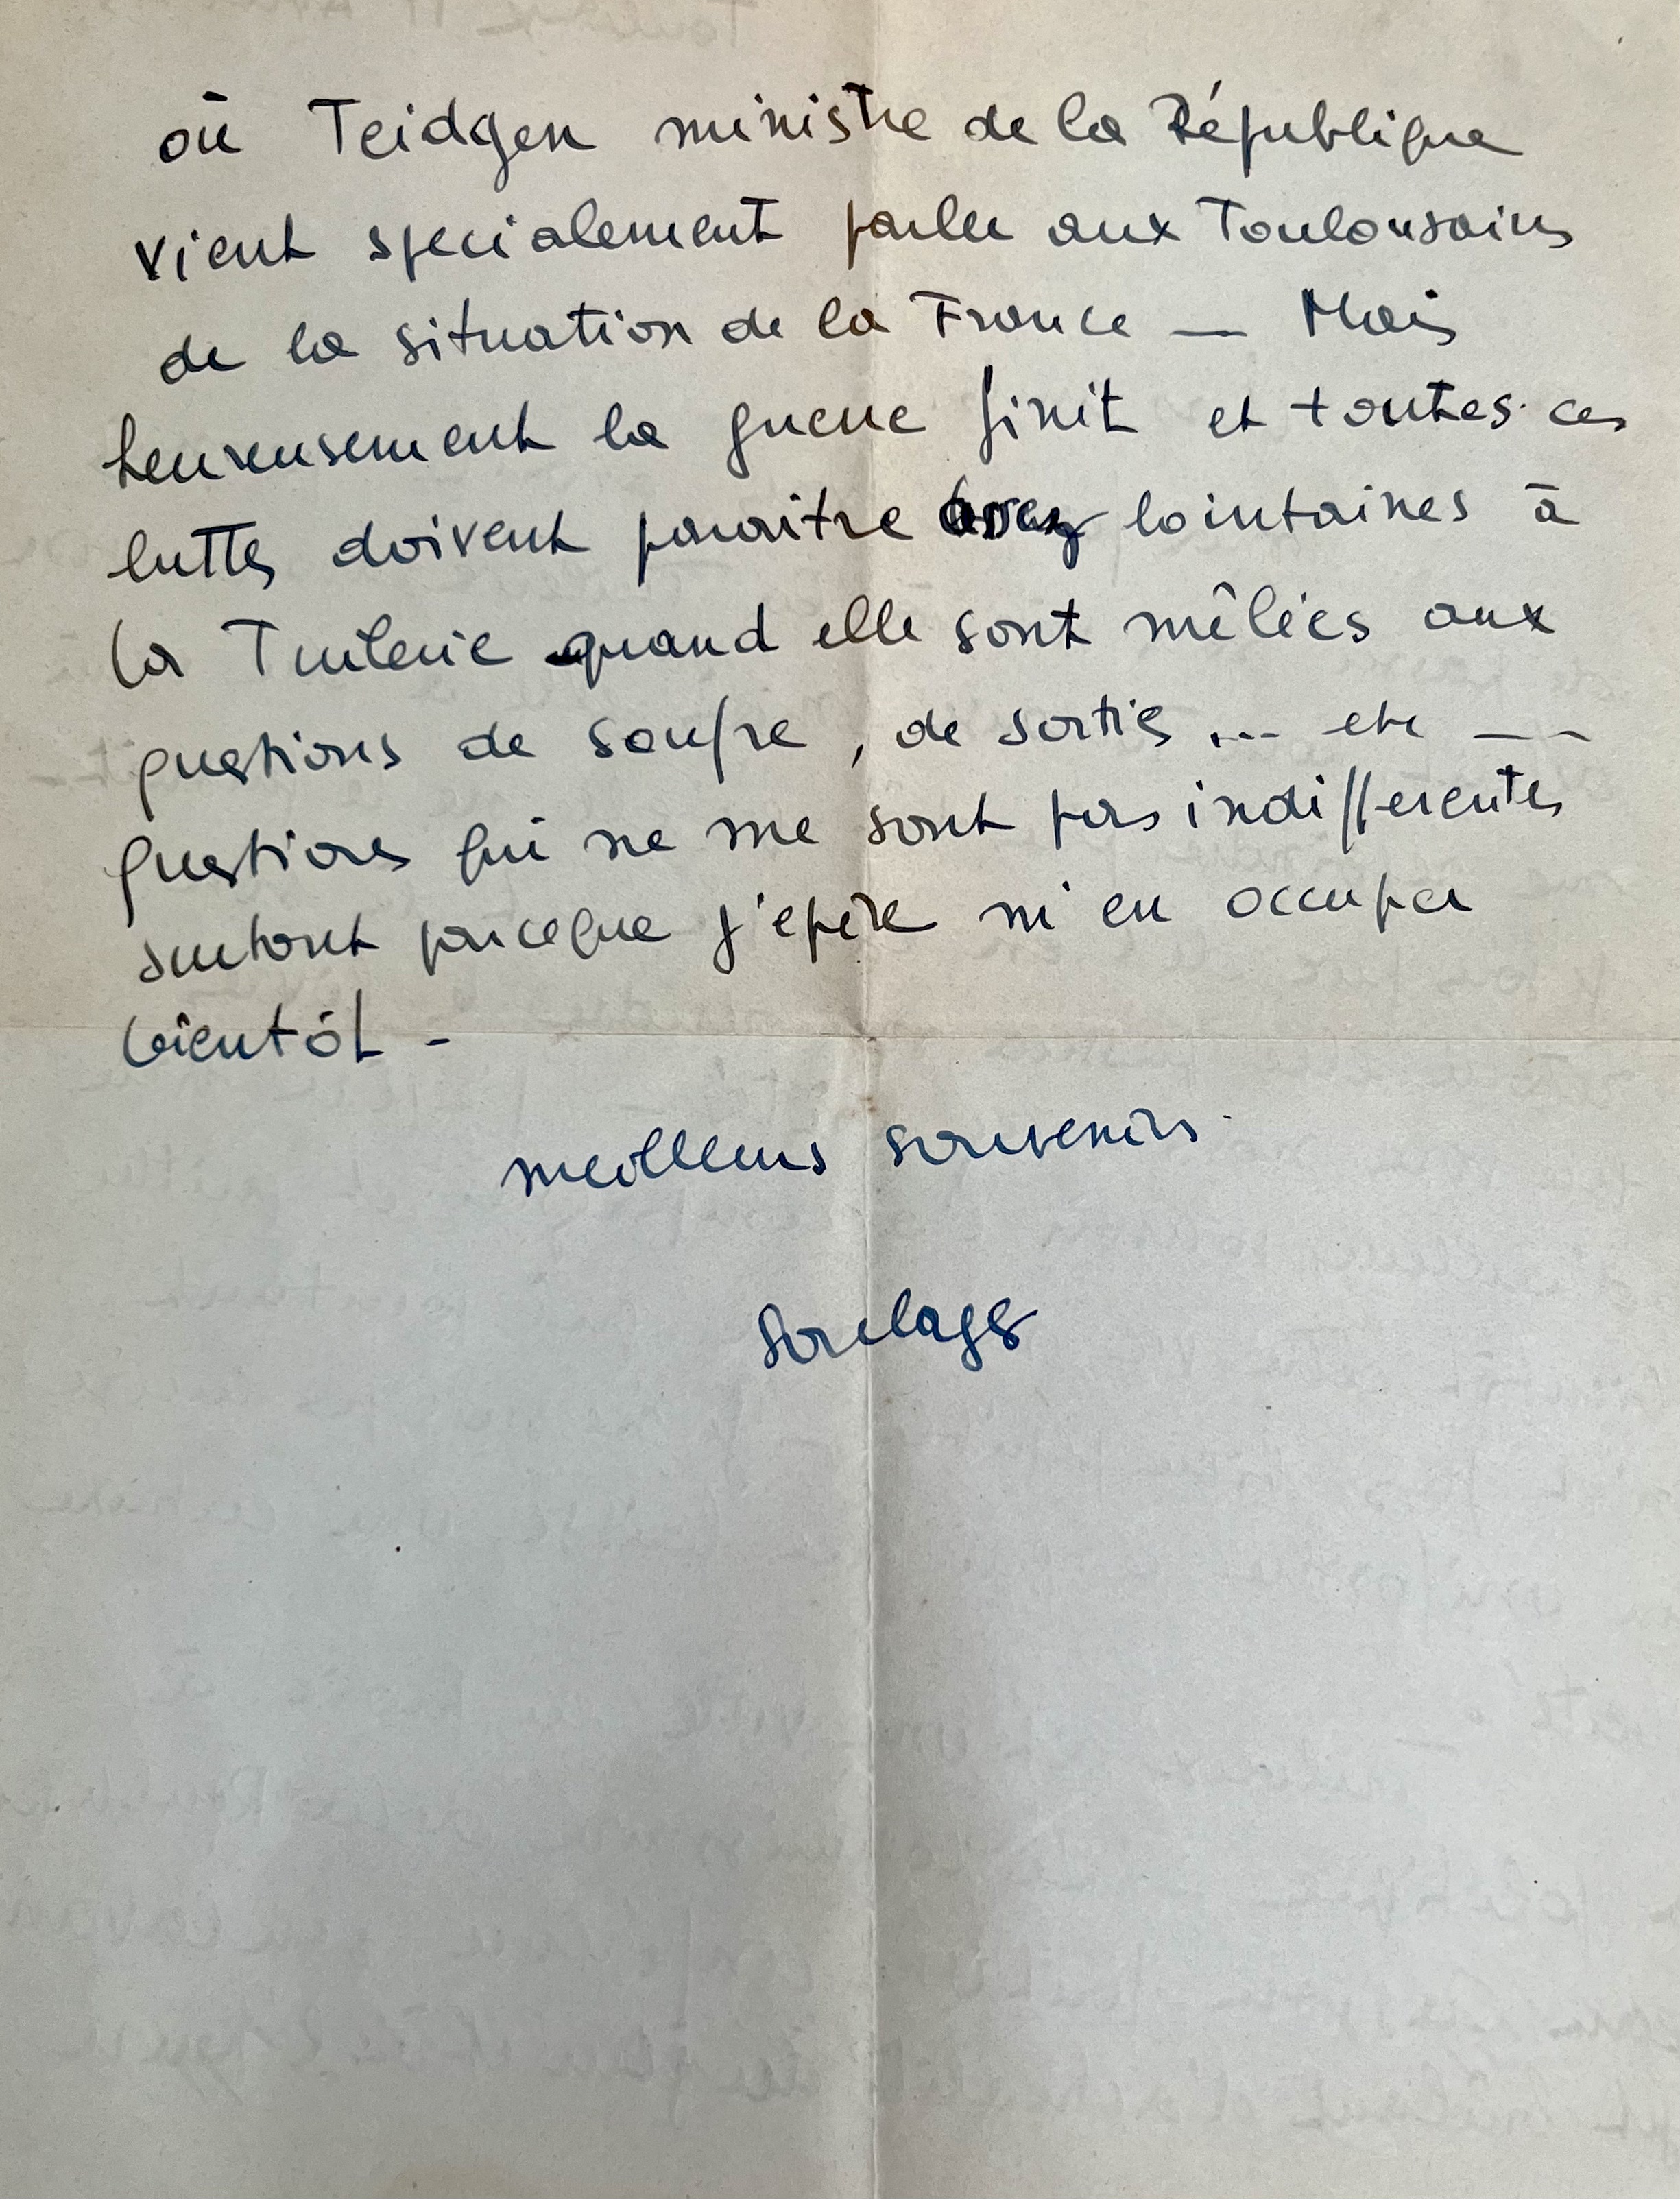 où Teidgen ministre de la République
vient specialement parler aux Toulousains
de la situation de la France — Mais
heureusement la guerre finit et toutes ces
luttes doivent paraitre assez lointaines à
la Tuilerie quand elle sont mêlées aux
questions de soufre, de sorties ... etc — -
questions qui ne me sont pas indifferentes
surtout parceque j'epère m'en occuper
bientôt -
meilleurs souvenirs.
Soulages